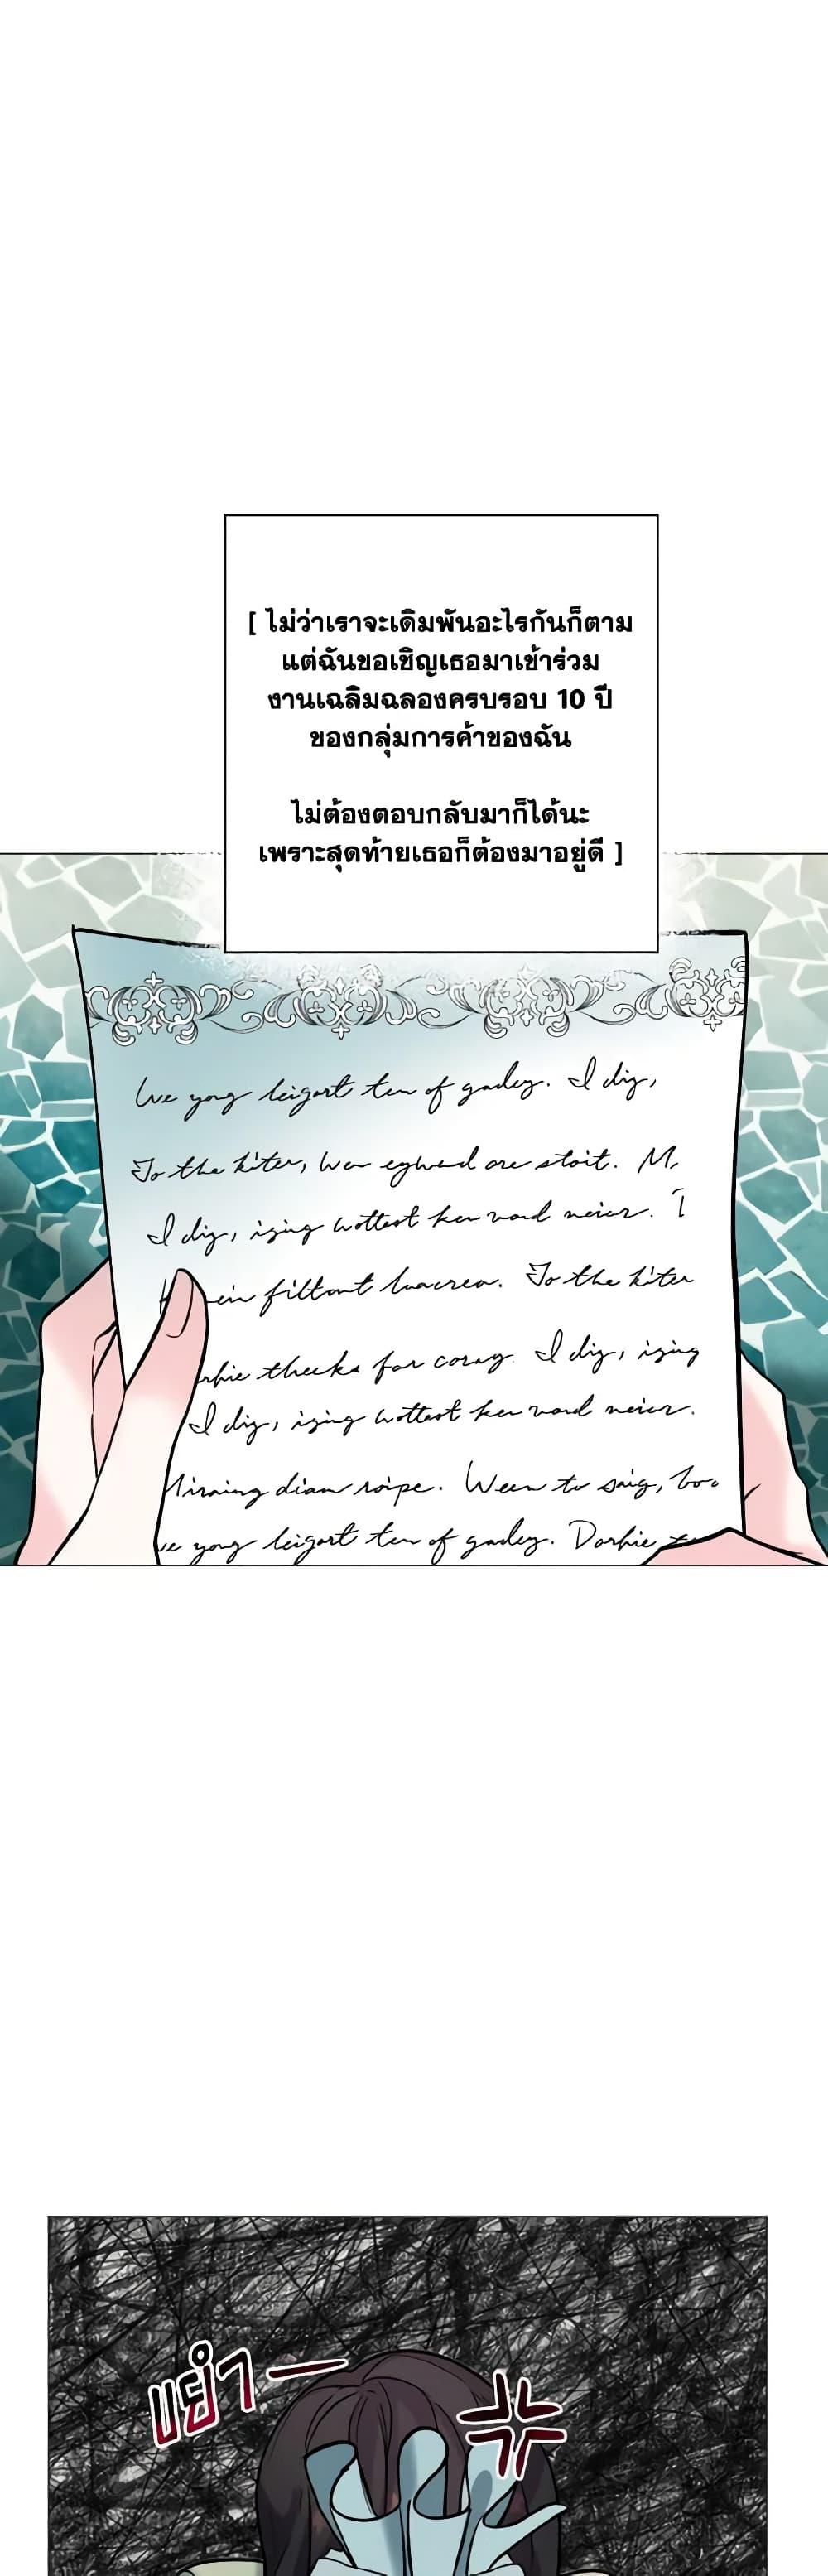 [ ไม่ว่าเราจะเดิมพันอะไรกันก็ตาม
แต่ฉันขอเชิญเธอมาเข้าร่วม
งานเฉลิมฉลองครบรอบ 10 ปี
ของกลุ่มการค้าของฉัน
ไม่ต้องตอบกลับมาก็ได้นะ
เพราะสุดท้ายเธอก็ต้องมาอยู่ดี ]
We yong leigort ten of gadey. I dig,
To the kiter, are stoit. M
I dig, izing wottest ken vond neier. I
filtont To the kiter
thecks for coray. I dig, izing
I dig, izing wottest ken vond neier.
diam roipe. Ween to saig, boo
yong leigort ten of gadey. Dorhie
แย่—